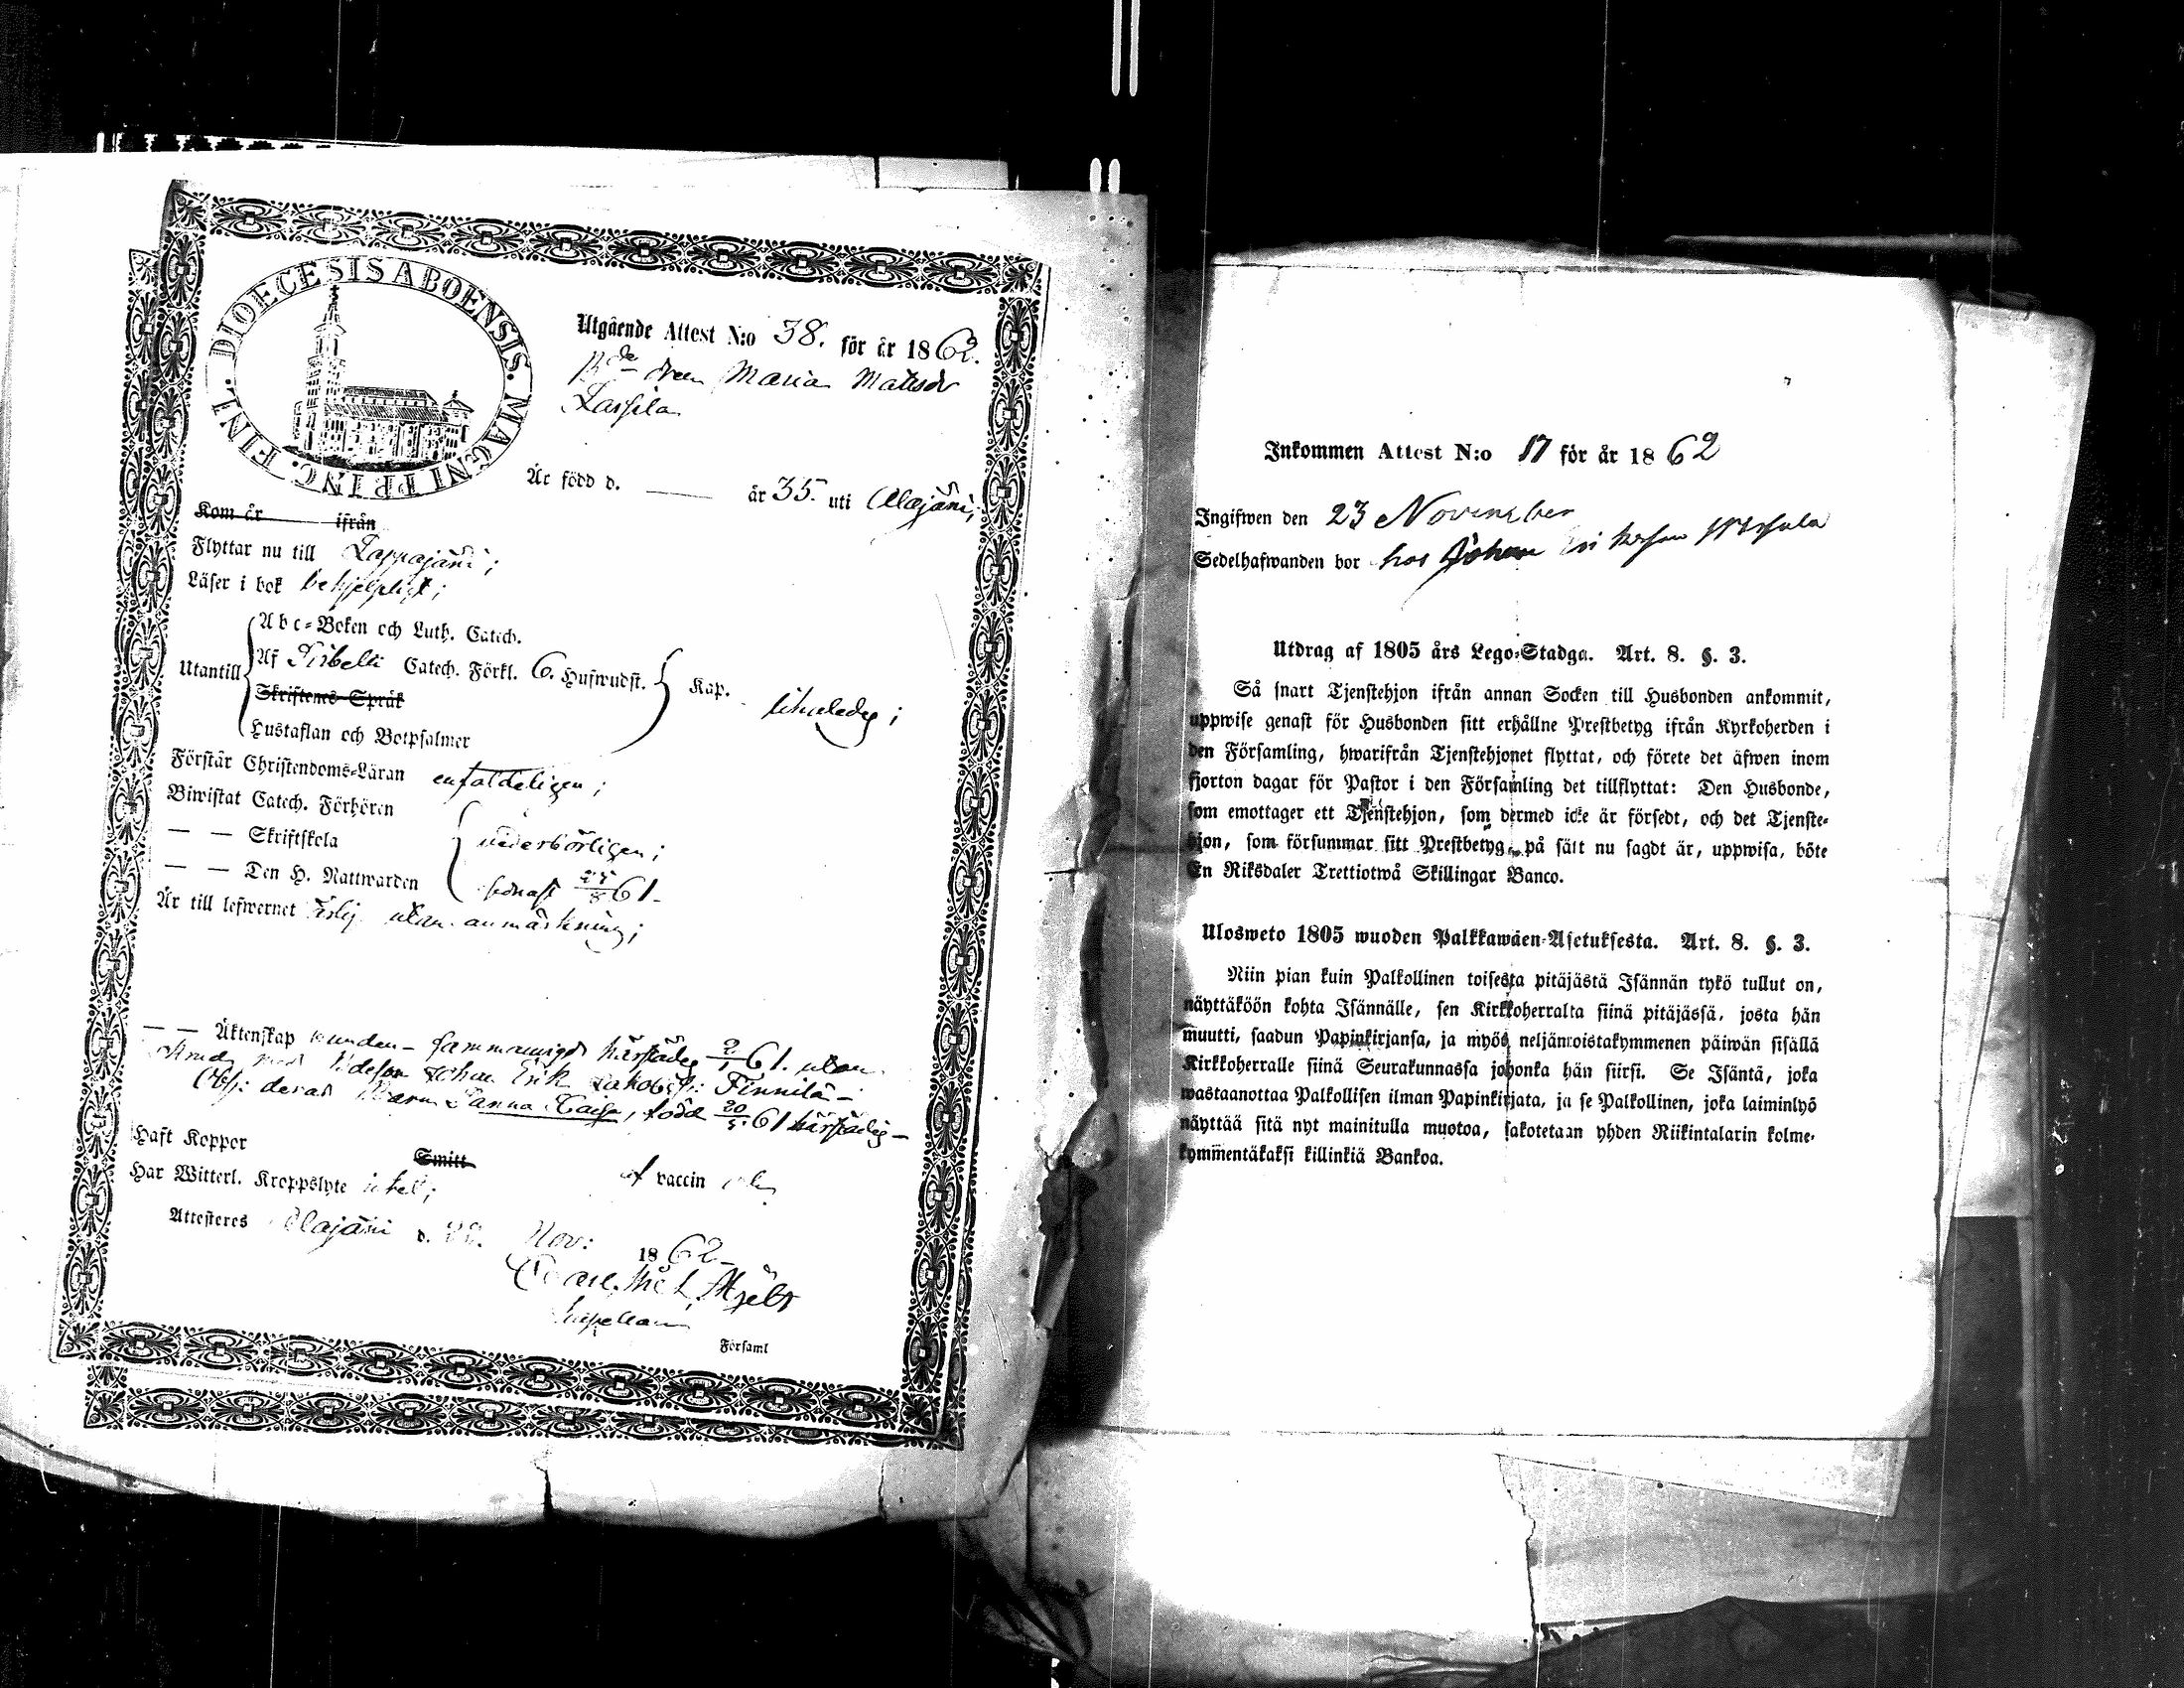 DIOECESIS ABOENSIS. MAGNI PRINC. FINL.
Utgående Attest N:o 38. för år 1862.
Maria Mattsdr
Lassila
Är född d. —— år 35. uti Alajärvi;
Kom år —— ifrån
Flyttar nu till Lappajärvi;
Läser i bok behjelpligt;
Abc-Boken och Luth. Catech.
Utantill Af Catech. Förkl. 6. Hufwudst. Kap. likaledes;
Skriftenes Språk
Hustaflan och Botpsalmer
Förstår Christendoms-Läran enfaldeligen;
Biwistat Catech. Förhören
— — Skriftskola wederbörligen;
— — Den H. Nattwarden senast 61.
Är till lefwernet ärlig utan anmärkning;
— — Äktenskap 61. utan
med Johan Erik Finnilä —
deras Barn Sanna Caisa, född 20/5 61 härstädes —
Haft Koppor Smitt af vaccin
Har Witterl. Kroppslyte icke;
Attesteras Alajärvi d. 22. Nov: 1862 —
Kapellan
Församl
Inkommen Attest N:o 17 för år 1862
Ingifwen den 23 November
Sedelhafwanden bor hos Johan
Utdrag af 1805 års Lego-Stadga. Art. 8. §. 3.
Så snart Tjenstehjon ifrån annan Socken till Husbonden ankommit,
uppwise genast för Husbonden sitt erhållne Prestbetyg ifrån Kyrkoherden i
den Församling, hwarifrån Tjenstehjonet flyttat, och förete det äfwen inom
fjorton dagar för Pastor i den Församling det tillflyttat: Den Husbonde,
som emottager ett Tjenstehjon, som dermed icke är försedt, och det Tjenste-
hjon, som försummar sitt Prestbetyg, på sätt nu sagdt är, uppwisa, böte
En Riksdaler Trettiotwå Skillingar Banco.
Ulosweto 1805 wuoden Palkkawäen-Asetuksesta. Art. 8. §. 3.
Niin pian kuin Palkollinen toisesta pitäjästä Isännän tykö tullut on,
näyttäköön kohta Isännälle, sen Kirkkoherralta siinä pitäjässä, josta hän
muutti, saadun Papinkirjansa, ja myös neljänroistakymmenen päiwän sisällä
Kirkkoherralle siinä Seurakunnassa johonka hän siirsi. Se Isäntä, joka
wastaanottaa Palkollisen ilman Papinkirjata, ja se Palkollinen, joka laiminlyö
näyttää sitä nyt mainitulla muotoa, sakotetaan yhden Riikintalarin kolme-
kymmentäkaksi killinkiä Bankoa.